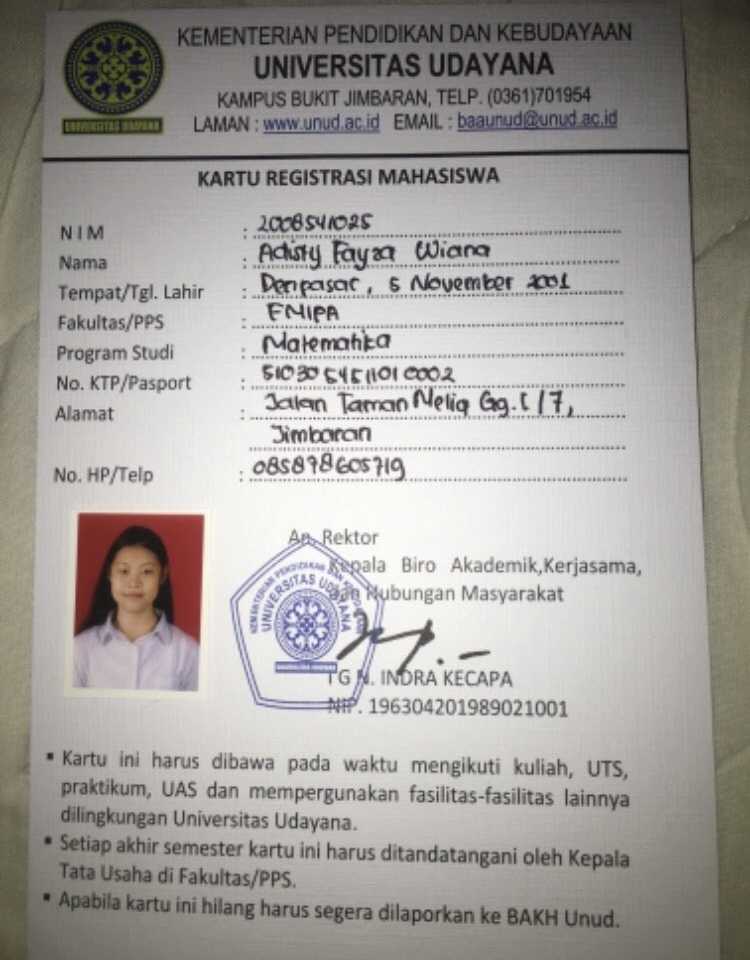 KEMENTERIAN PENDIDIKAN DAN KEBUDAYAAN
UNIVERSITAS UDAYANA
KAMPUS BUKIT JIMBARAN, TELP. (0361)701954
LAMAN : www.unud.ac.id EMAIL : baaunud@unud.ac.id
UNIVERSITAS UDAYANA
KARTU REGISTRASI MAHASISWA
NIM : 2008541025
Nama : Adisty Fayza Wiana
Tempat/Tgl. Lahir : Denpasar, 5 November 2001
Fakultas/PPS : FMIPA
Program Studi : Matematika
No. KTP/Pasport : 5103054511010002
Alamat : Jalan Taman Neliq Gg. /7,
Jimbaran
No. HP/Telp : 085878605719
An. Rektor
Kepala Biro Akademik,Kerjasama,
dan Hubungan Masyarakat
KEMENTERIAN PENDIDIKAN DAN KEBUDAYAAN
UNIVERSITAS UDAYANA
UNIVERSITAS UDAYANA
I G N. INDRA KECAPA
NIP. 196304201989021001
▪ Kartu ini harus dibawa pada waktu mengikuti kuliah, UTS,
praktikum, UAS dan mempergunakan fasilitas-fasilitas lainnya
dilingkungan Universitas Udayana.
▪ Setiap akhir semester kartu ini harus ditandatangani oleh Kepala
Tata Usaha di Fakultas/PPS.
▪ Apabila kartu ini hilang harus segera dilaporkan ke BAKH Unud.